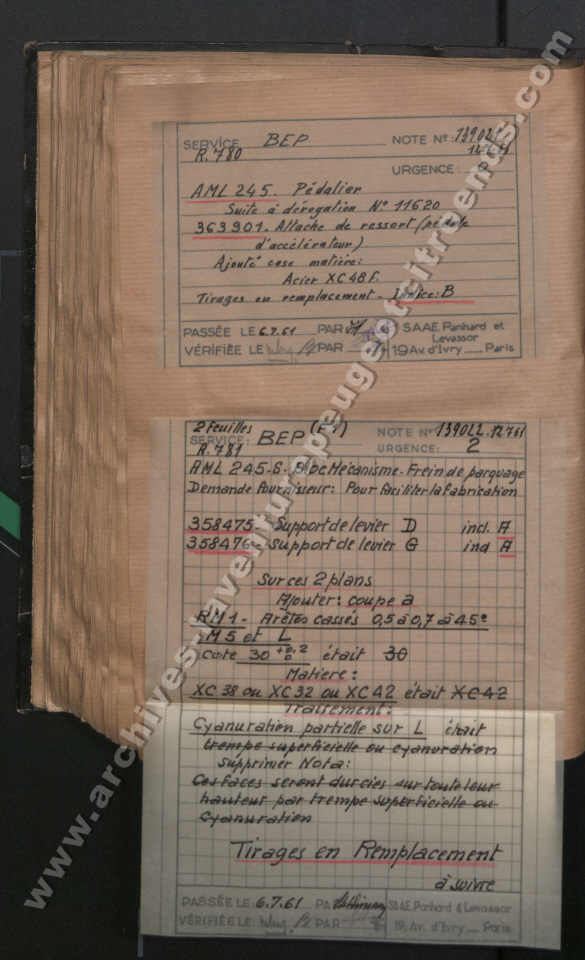 SERVICE BEP NOTE Nº: 139021
R.780
URGENCE:
AML 245. Pédalier
Suite à dérogation Nº 11620
363901. Attache de ressort (pédale
d'accélérateur)
Ajouté case matière:
Acier XC48f.
Tirages en remplacement - Indice: B
PASSÉE LE 6.7.61 PAR SAAE. Panhard et
Levassor
VÉRIFIÉE LE PAR 19 Av. d'Ivry __ Paris
2 Feuilles
SERVICE: BEP NOTE Nº 139022.12.7.61
R.781 URGENCE: 2
AML 245-S. Bloc Mécanisme. Frein de parquage
Demande fournisseur: Pour faciliter la fabrication
358475- Support de levier D ind. A
358476- Support de levier G ind A
Sur ces 2 plans
Ajouter: coupe a
RM1- Arêtes cassés 0,5 à 0,7 à 45º
M5 et L
Cote 30 +0,2 0 était 30
Matiere:
XC 38 ou XC 32 ou XC 42 était XC 42
Traitement:
Cyanuration partielle sur L était
trempe superficielle ou cyanuration
Supprimer Nota:
Ces faces seront durcies sur toute leur
hauteur par trempe superficielle ou
Cyanuration
Tirages en Remplacement
à suivre
PASSÉE LE: 6.7.61 PA SAAE. Panhard & Levassor
VÉRIFIÉE LE: PAR 19, Av. d'Ivry __ Paris
www.archives-laventurepeugeotcitroends.com